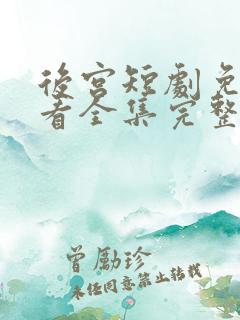 後宮短劇免
看全集完整
曾勵珍
未經同意禁止轉載